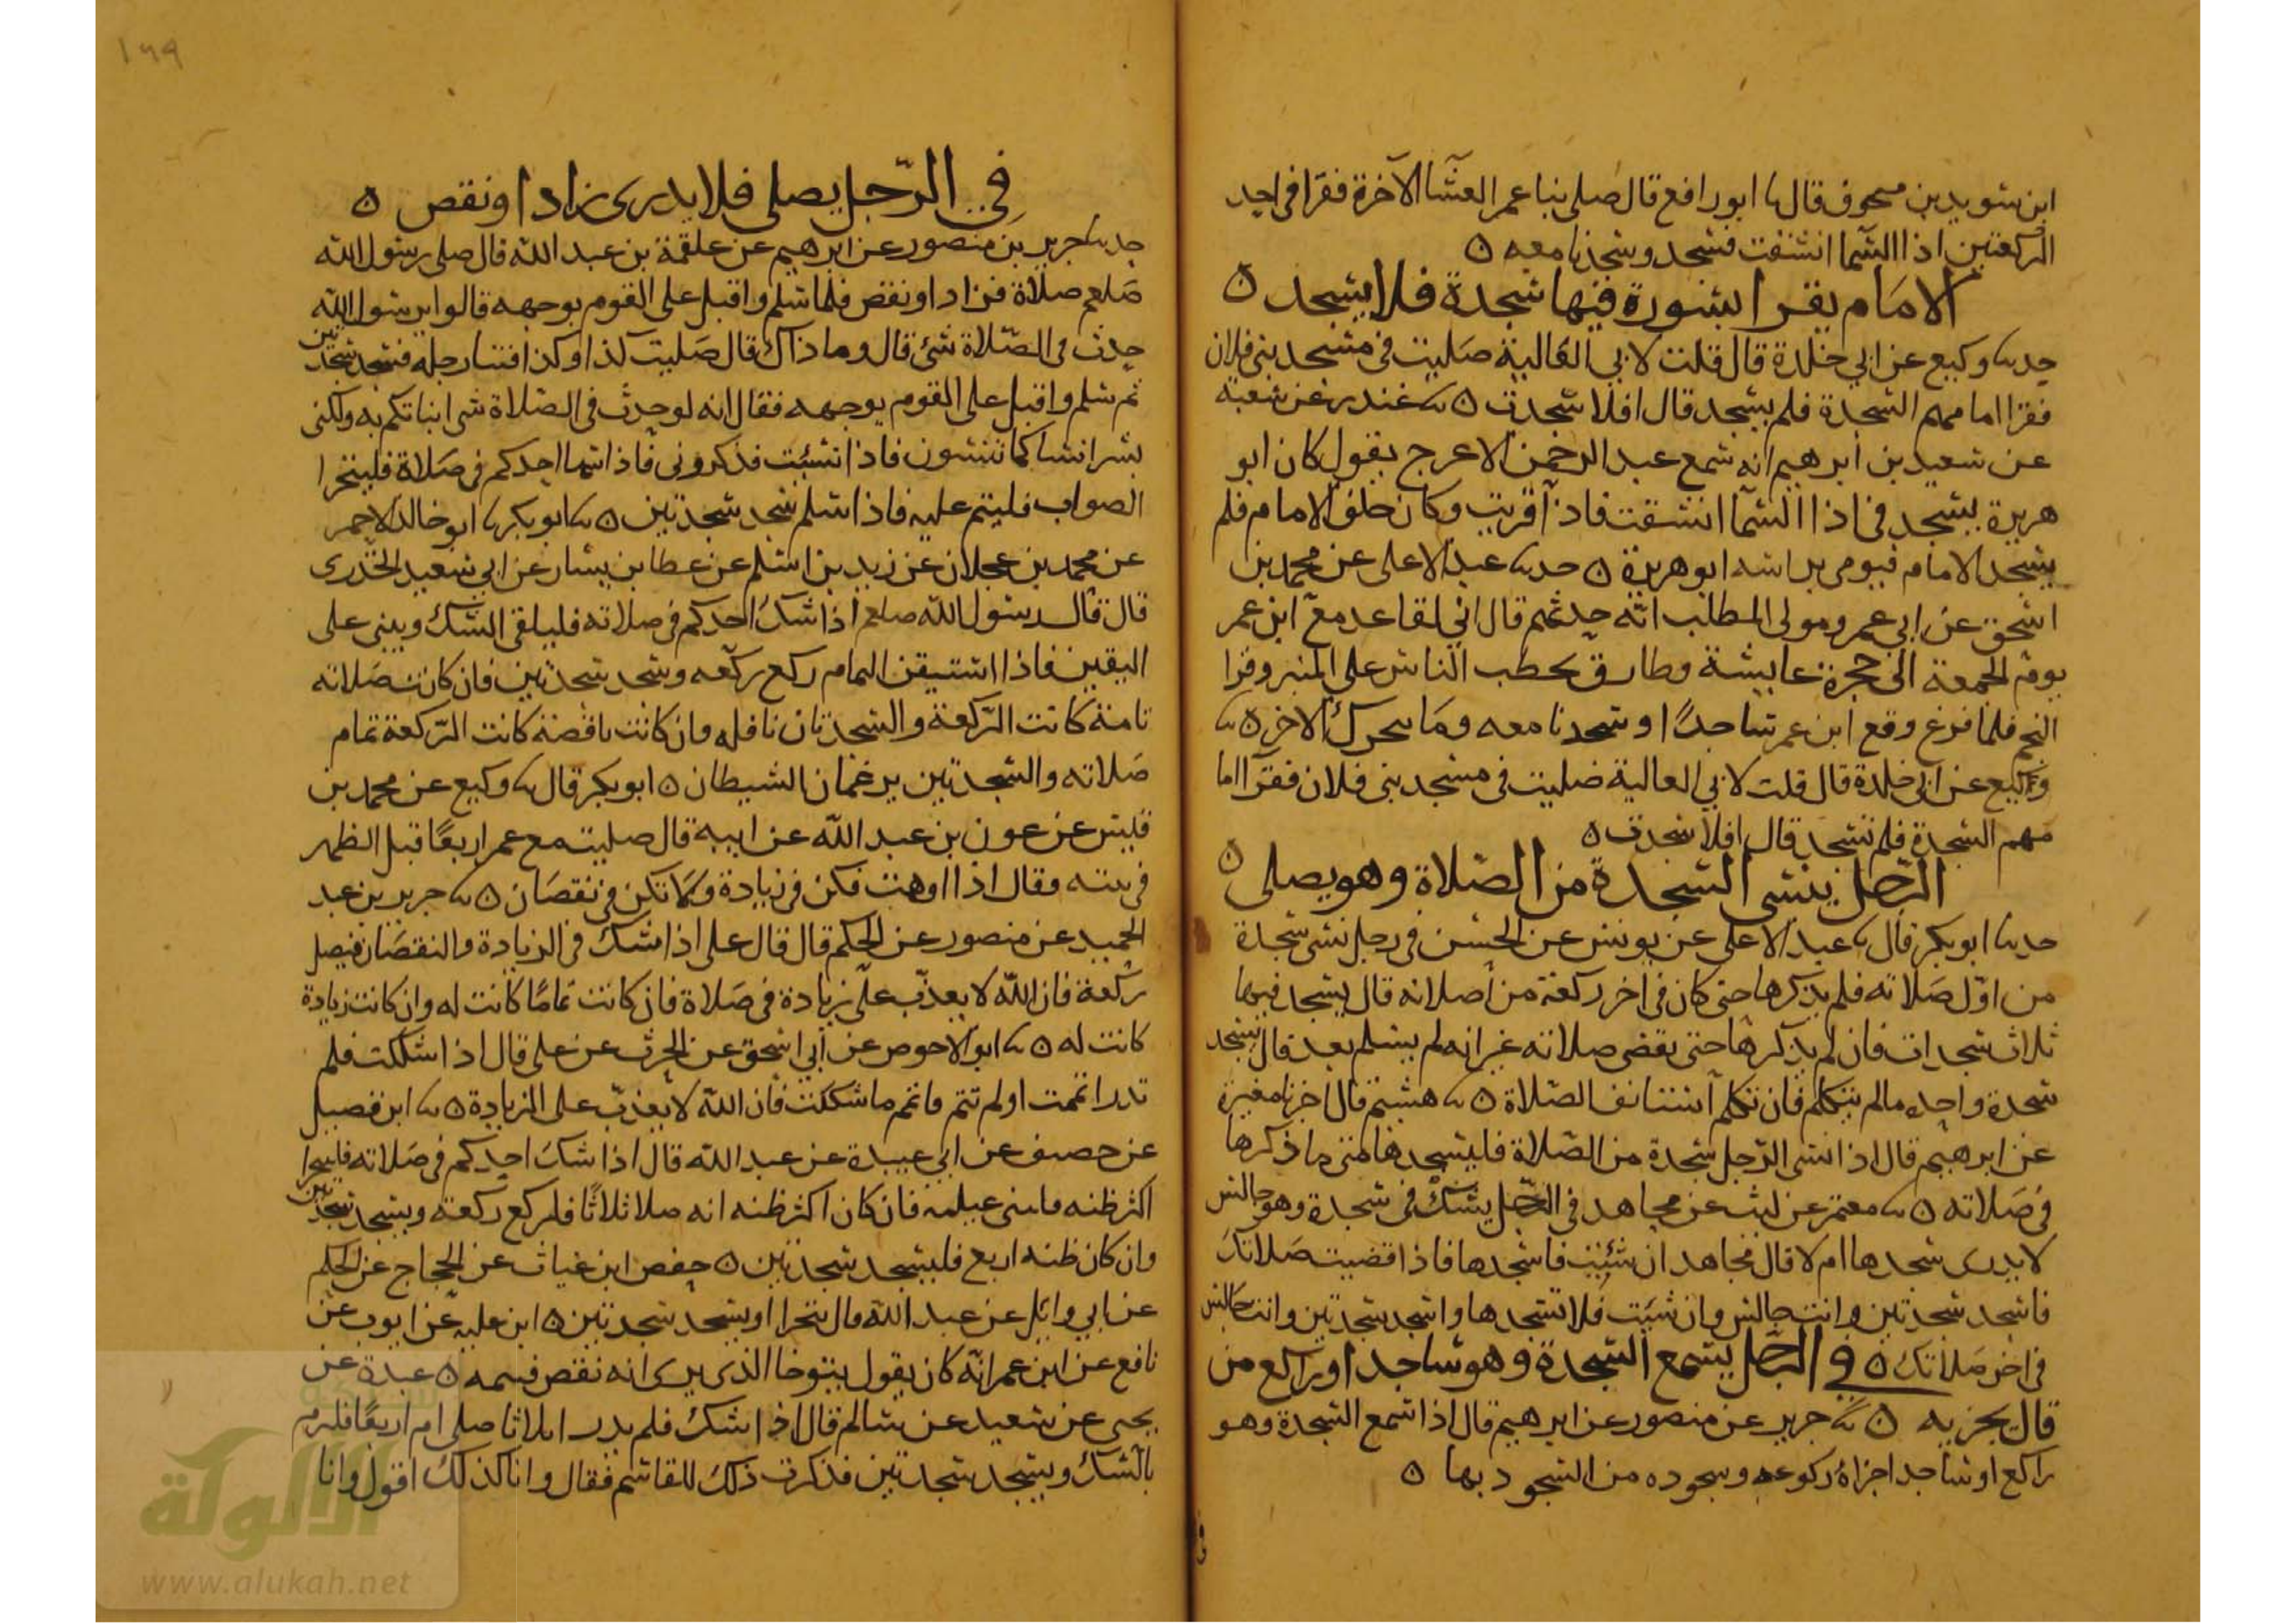 ابن سويد بن منجوف قال نا ابو رافع قال صلى بنا عمر العشا الآخرة فقرا في احد
الركعتين اذا السما انشقت فسجد وسجدنا معه ٥
الامام يقرا السورة فيها سجدة فلا يسجد ٥
حدثنا وكيع عن ابي خلدة قال قلت لابي العالية صليت في مسجد بني فلان
فقرا امامهم السجدة فلم يسجد قال افلا سجدت ٥ نا غندر عن شعبة
عن سعيد بن ابرهيم انه سمع عبد الرحمن الاعرج يقول كان ابو
هريرة يسجد في اذا السما انشقت فاذا قريت وكان خلف الامام فلم
يسجد الامام فيومى براسه ابو هريرة ٥ حدثنا عبد الاعلى عن محمد بن
اسحق عن ابي عمرو مولى المطلب انه حدثهم قال اني لقاعد مع ابن عمر
يوم الجمعة الى حجرة عايشة وطارق يخطب الناس على المنبر وقرا
النجم فلما فرغ وقع ابن عمر ساجدا وسجدنا معه وما يتحرك الاخر ٥ نا
وكيع عن ابي خلدة قال قلت لابي العالية صليت في مسجد بني فلان فقرا اما
مهم السجدة فلم تسجد قال افلا سجدت ٥
الرجل ينسى السجدة من الصلاة وهو يصلي ٥
حدثنا ابو بكر قال نا عبد الاعلى عن يونس عن الحسن في رجل نسي سجدة
من اول صلاته فلم يذكرها حتى كان في اخر ركعة من صلاته قال يسجد فيها
ثلاث سجدات فان لم يذكرها حتى يقضى صلاته غير انه لم يسلم بعد قال يسجد
سجدة واحده مالم يتكلم فان تكلم استانف الصلاة ٥ نا هشيم قال اخبرنا مغيرة
عن ابرهيم قال اذا نسى الرجل سجدة من الصلاة فليسجدها متى ما ذكرها
في صلاته ٥ نا معتمر عن ليث عن مجاهد في الرجل يشك في سجدة وهو جالس
لا يدرى سجدها ام لا قال مجاهد ان شئت فاسجدها فاذا قضيت صلاتك
فاسجد سجدتين وانت جالس وان شئت فلا تسجدها واسجد سجدتين وانت جالس
في اخر صلاتك ٥ في الرجل يسمع السجدة وهو ساجد او راكع من
قال يجزيه ٥ نا جرير عن منصور عن ابرهيم قال اذا سمع السجدة وهو
راكع او ساجد اجزاه ركوعه وسجوده من السجود بها ٥
في
١٦٩
في الرجل يصلي فلا يدرى زاد او نقص ٥
حدثنا جرير بن منصور عن ابرهيم عن علقمة بن عبد الله قال صلى رسول الله
صلعم صلاة فزاد او نقص فلما سلم واقبل على القوم بوجهه قالوا يرسول الله
حدث في الصلاة شي قال وما ذاك قال صليت كذا وكذا فثنا رجله فسجد سجدتين
ثم سلم واقبل على القوم بوجهه فقال انه لو حدث في الصلاة شي انباتكم به ولكني
بشر انسا كما تنسون فاذا نسيت فذكروني فاذا سها احدكم في صلاة فليتحرا
الصواب فليتم عليه فاذا سلم سجد سجدتين ٥ نا ابو بكر نا ابو خالد الاحمر
عن محمد بن عجلان عن زيد بن اسلم عن عطا بن يسار عن ابي سعيد الخدرى
قال قال رسول الله صلعم اذا شك احدكم في صلاته فليلقى الشك ويبنى على
اليقين فاذا استيقن التمام ركع ركعه وسجد سجدتين فان كانت صلاته
تامة كانت الركعة والسجدتان نافله وان كانت ناقصة كانت الركعة تمام
صلاته والسجدتين يرغمان الشيطان ٥ ابو بكر قال نا وكيع عن محمد بن
قيس عن عون بن عبد الله عن ابيه قال صليت مع عمر اربعا قبل الظهر
في بيته وقال اذا اوهمت فكن في زيادة ولا تكن في نقصان ٥ نا جرير بن عبد
الحميد عن منصور عن الحكم قال قال على اذا شك في الزيادة والنقصان فيصل
ركعة فان الله لا يعذب على زيادة في صلاة فان كانت تماما كانت له وان كانت زيادة
كانت له ٥ نا ابو الاحوص عن ابي اسحق عن الحرث عن على قال اذا شككت فلم
تدر اتممت او لم تتم فاتم ما شككت فان الله لا يعذب على الزيادة ٥ نا ابن فضيل
عن خصيف عن ابي عبيدة عن عبد الله قال اذا شك احدكم في صلاته فليتحرا
اكثر ظنه فليبنى عليه فان كان اكثر ظنه انه صلا ثلاثا فليركع ركعة ويسجد سجدتين
وان كان ظنه اربع فليسجد سجدتين ٥ حفص ابن غياث عن الحجاج عن الحكم
عن ابي وايل عن عبد الله قال يتحرا ويسجد سجدتين ٥ ابن علية عن ايوب عن
نافع عن ابن عمر انه كان يقول يتوخا الذي يرى انه نقص فيتمه ٥ عبدة عن
يحيى عن سعيد عن سالم قال اذا شك فلم يدر اثلاثا صلى ام اربعا فليرم
بالشك ويسجد سجدتين فذكرت ذلك للقاسم فقال وانا كذلك اقول وانا
شبكة
الألوكة
www.alukah.net